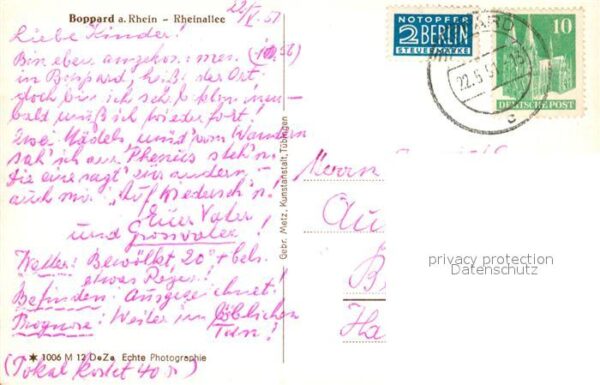 Boppard a. Rhein - Rheinallee
22/V. 51
Liebe Kinder!
Bin eben angekommen
in Boppard, heißt der Ort,
doch bin ich schon
bald muß ich wieder fort!
Zwei Mädels und vom Wandern
seh' ich am steh'n
die eine sagt zur andern
auch mir "Auf Wiederseh'n!
Euer Vater
und Grossvater!
Wetter: Bewölkt, 20° +
etwas Regen!
Befinden: Ausgezeichnet!
Prognose: Weiter im löblichen
Tun!
✶ 1006 M 12 DeZe Echte Photographie
(Pokal kostet 40 )
Gebr. Metz, Kunstanstalt, Tübingen
NOTOPFER
2 BERLIN
STEUERMARKE
10
DEUTSCHE POST
22.5.51
c
Herrn
Au
B
Ha
privacy protection
Datenschutz